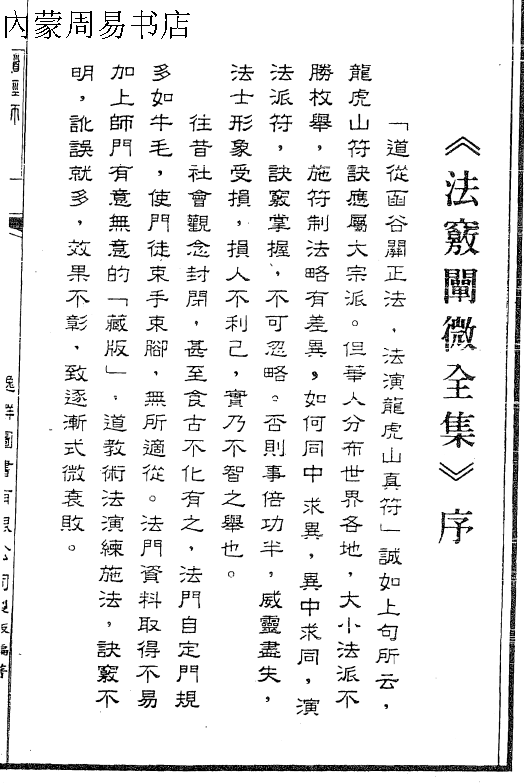 內蒙周易书店
《法竅闡微全集》序
「道從函谷關正法，法演龍虎山真符」誠如上句所云，
龍虎山符訣應屬大宗派。但華人分布世界各地，大小法派不
勝枚舉，施符制法略有差異，如何同中求異，異中求同，演
法派符，訣竅掌握，不可忽略。否則事倍功半，威靈盡失，
法士形象受損，損人不利己，實乃不智之舉也。
往昔社會觀念封閉，甚至食古不化有之，法門自定門規
多如牛毛，使門徒束手束腳，無所適從。法門資料取得不易
加上師門有意無意的「藏版」，道教術法演練施法，訣竅不
明，訛誤就多，效果不彰，致逐漸式微衰敗。
逸群圖書有限公司製版編著